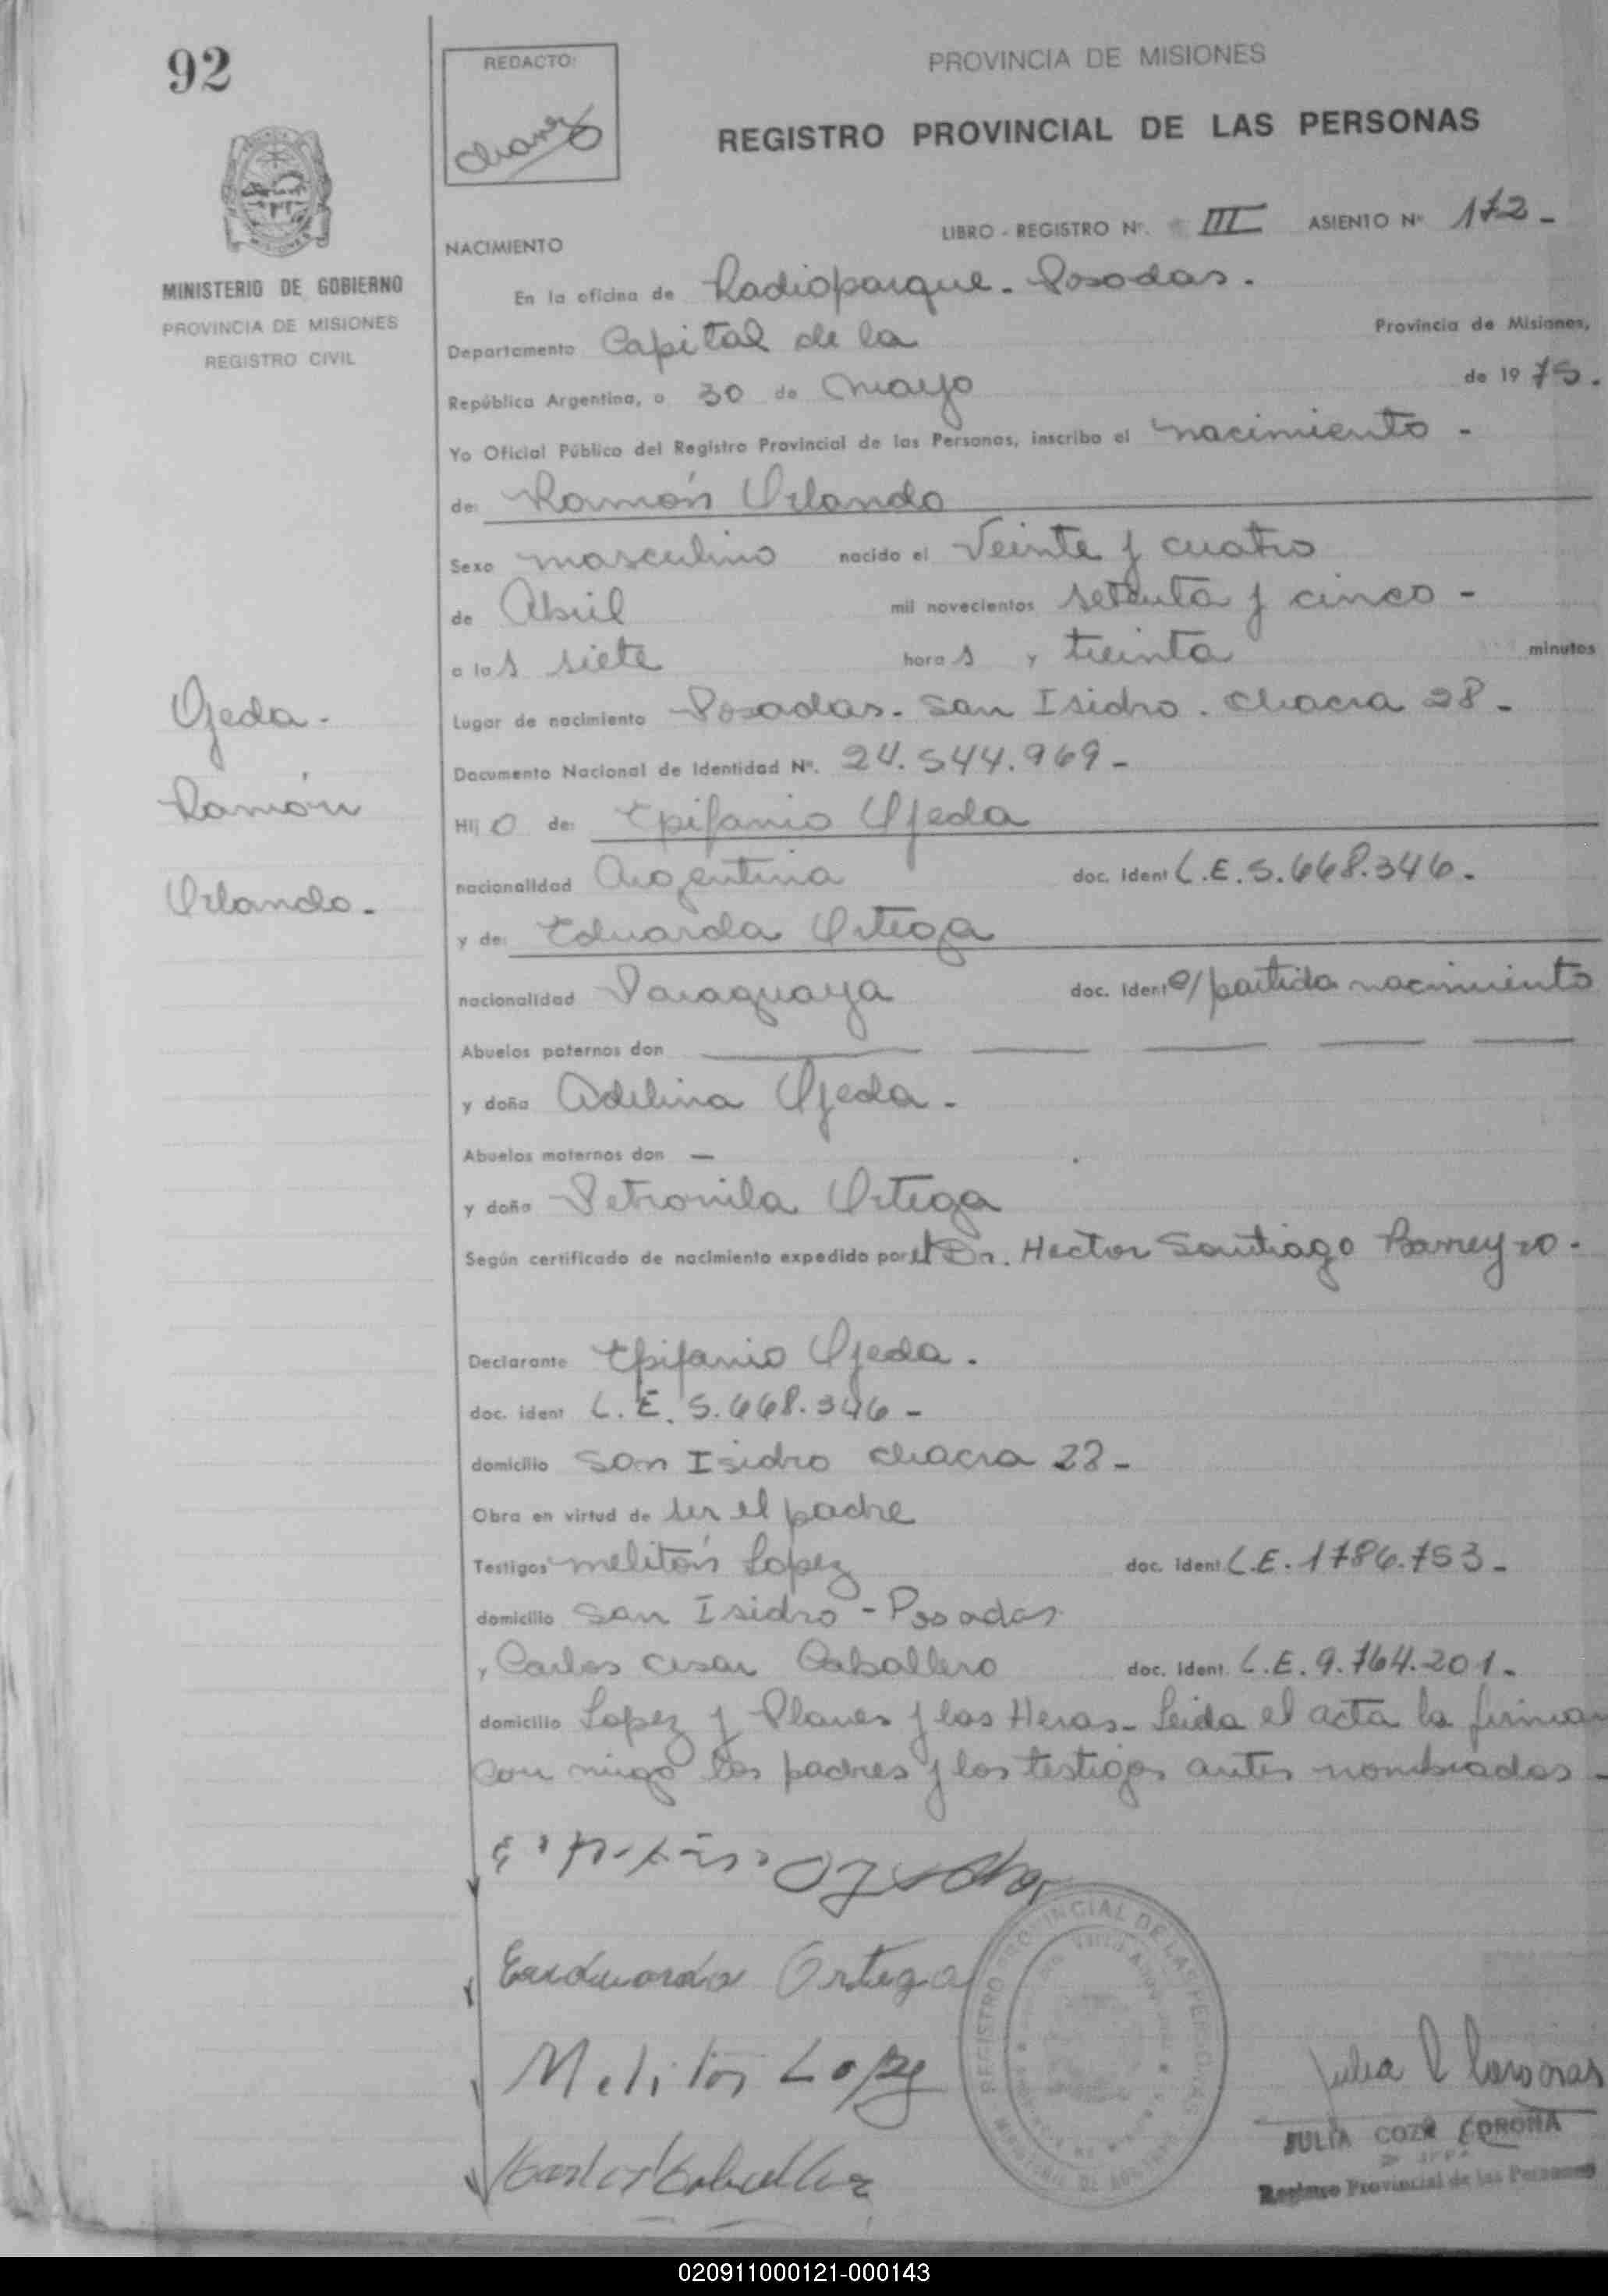 92
REDACTO:
PROVINCIA DE MISIONES
REGISTRO PROVINCIAL DE LAS PERSONAS
LIBRO - REGISTRO Nº. III ASIENTO Nº 172 -
NACIMIENTO
MINISTERIO DE GOBIERNO
PROVINCIA DE MISIONES
REGISTRO CIVIL
En la oficina de Radioparque - Posadas.
Departamento Capital de la Provincia de Misiones,
República Argentina, a 30 de Mayo de 1975.
Yo Oficial Público del Registro Provincial de las Personas, inscribo el nacimiento -
de: Ramón Orlando
Sexo masculino nacido el Veinte y cuatro
de Abril mil novecientos setenta y cinco -
a las siete horas y treinta minutos
Lugar de nacimiento Posadas - San Isidro. chacra 28 -
Documento Nacional de Identidad Nº. 24.544.969 -
Hijo de: Epifanio Ojeda
nacionalidad Argentina doc. ident L.E. 5.668.346.
y de: Eduarda Ortega
nacionalidad Paraguaya doc. ident c/ partida nacimiento
Abuelos paternos don
y doña Adelina Ojeda -
Abuelos maternos don -
y doña Petronila Ortega
Según certificado de nacimiento expedido por el Dr. Hector Santiago Barreyro -
Ojeda -
Ramón
Orlando -
Declarante Epifanio Ojeda.
doc. ident L.E. 5.668.346 -
domicilio San Isidro chacra 28 -
Obra en virtud de ser el padre
Testigos meliton Lopez doc. ident L.E. 1786.753 -
domicilio San Isidro - Posadas
y Carlos cesar Caballero doc. ident. L.E. 9.764.201 -
domicilio Lopez y Planes y las Heras - Leida el acta la firman
con migo los padres y los testigos antes nombrados -
Ojeda
Exduarda Ortega
Meliton Lopez
Carlos Caballero
REGISTRO PROVINCIAL DE LAS PERSONAS
JULIA COZR CORONA
Registro Provincial de las Personas
020911000121-000143